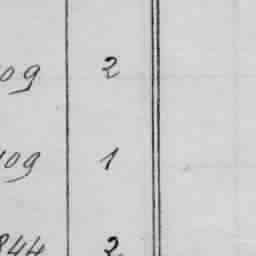 09 2
109 1
844 2